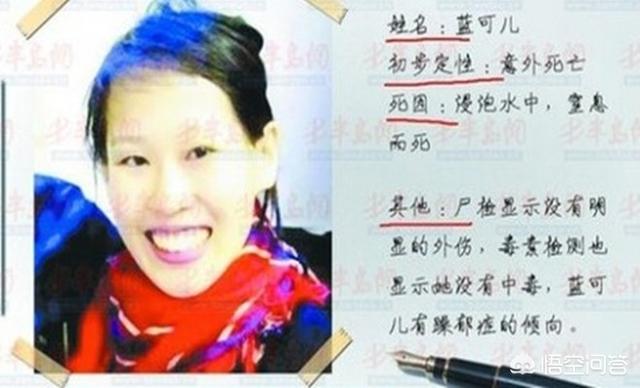 姓名：蓝可儿
初步定性：意外死亡
死因：熳炮水中，窒息
而死
其他：尸检显示没有明
显的外伤，毒素检测也
显示她没有中毒，蓝可
儿有躁郁症的倾向。
悟空问答